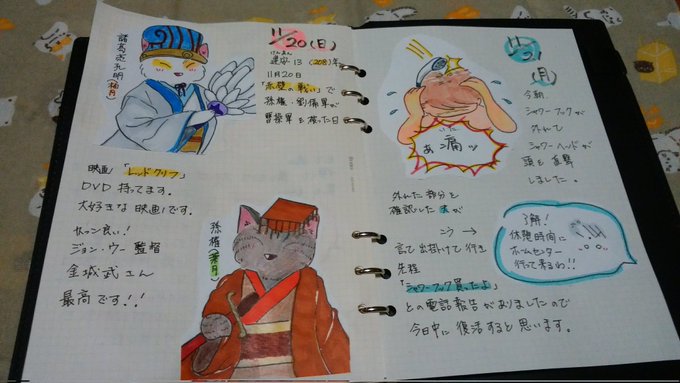 諸葛亮孔明(柚月)
11/20(日)
けんあん
建安13(208)年
11月20日
「赤壁の戦い」で
孫権・劉備軍が
曹操軍を破った日
映画「レッドクリフ」
DVD持ってます。
大好きな映画です。
サントラ良い!
ジョン・ウー監督
金城武さん
最高です!!
孫権(葉月)
11/21
(月)
今朝
シャワーフックが
外れて
シャワーヘッドが
頭を直撃
しました。
いた
あ痛ッ
外れた部分を
確認した夫が
言って出掛けて行き
先程
「シャワーフック買ったよ」
との電話報告がありましたので
今日中に復活すると思います。
了解!
休憩時間に
ホームセンター
行って来るわ!!